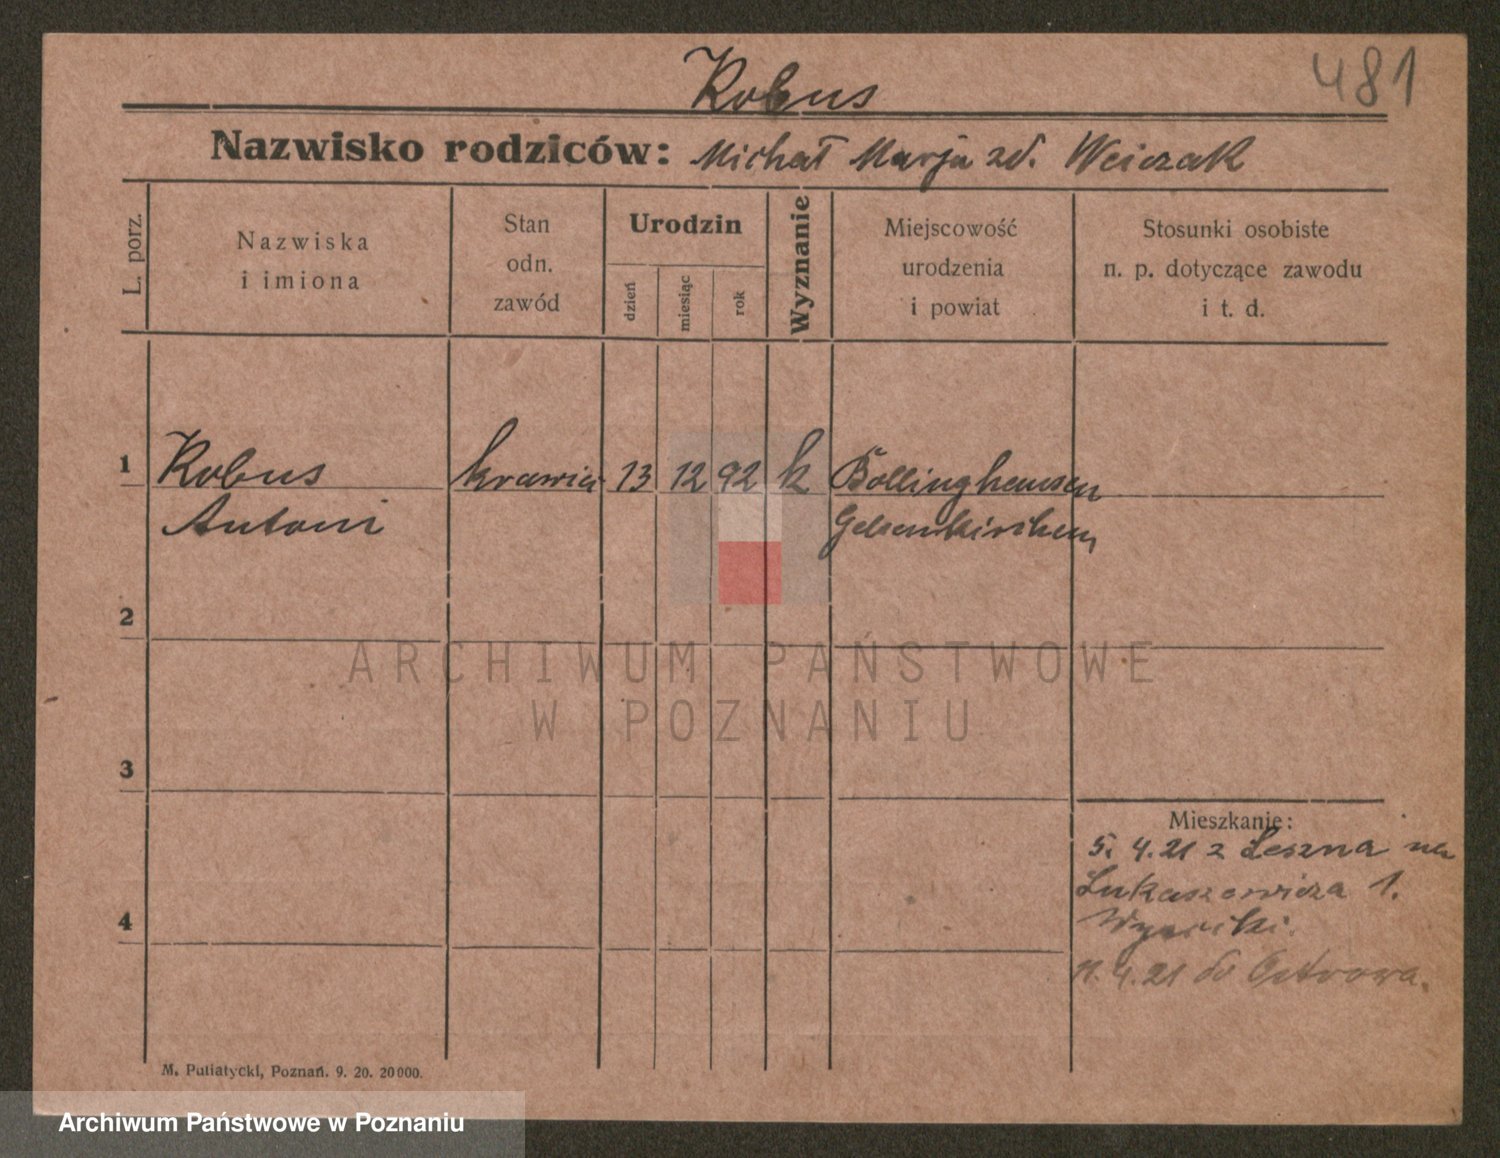 481
Robus
Nazwisko rodziców: Michał Marja zd. Wciczak
L. porz.
Nazwiska
i imiona
Stan
odn.
zawód
Urodzin
dzień
miesiąc
rok
Wyznanie
Miejscowość
urodzenia
i powiat
Stosunki osobiste
n. p. dotyczące zawodu
i t. d.
1
Robus
Antoni
krawiec
13
12
92
k
Bollinghausen
Gelsenkirchen
2
3
4
Mieszkanie:
5. 4. 21 z Leszna na
Łukaszewicza 1.
11. 4. 21 do Ostrowa.
M. Putiatycki, Poznań. 9. 20. 20000.
ARCHIWUM PAŃSTWOWE
W POZNANIU
Archiwum Państwowe w Poznaniu